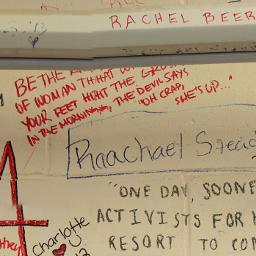 RACHEL BEER
BE THE
OF WOMAN THAT
YOUR FEET HIT THE
IN THE MORNING, THE DEVIL SAYS
"OH CRAP,
SHE'S UP..."
Raachael Stead
"ONE DAY, SOONE
ACTIVISTS FOR
RESORT TO CO
they
Charlotte